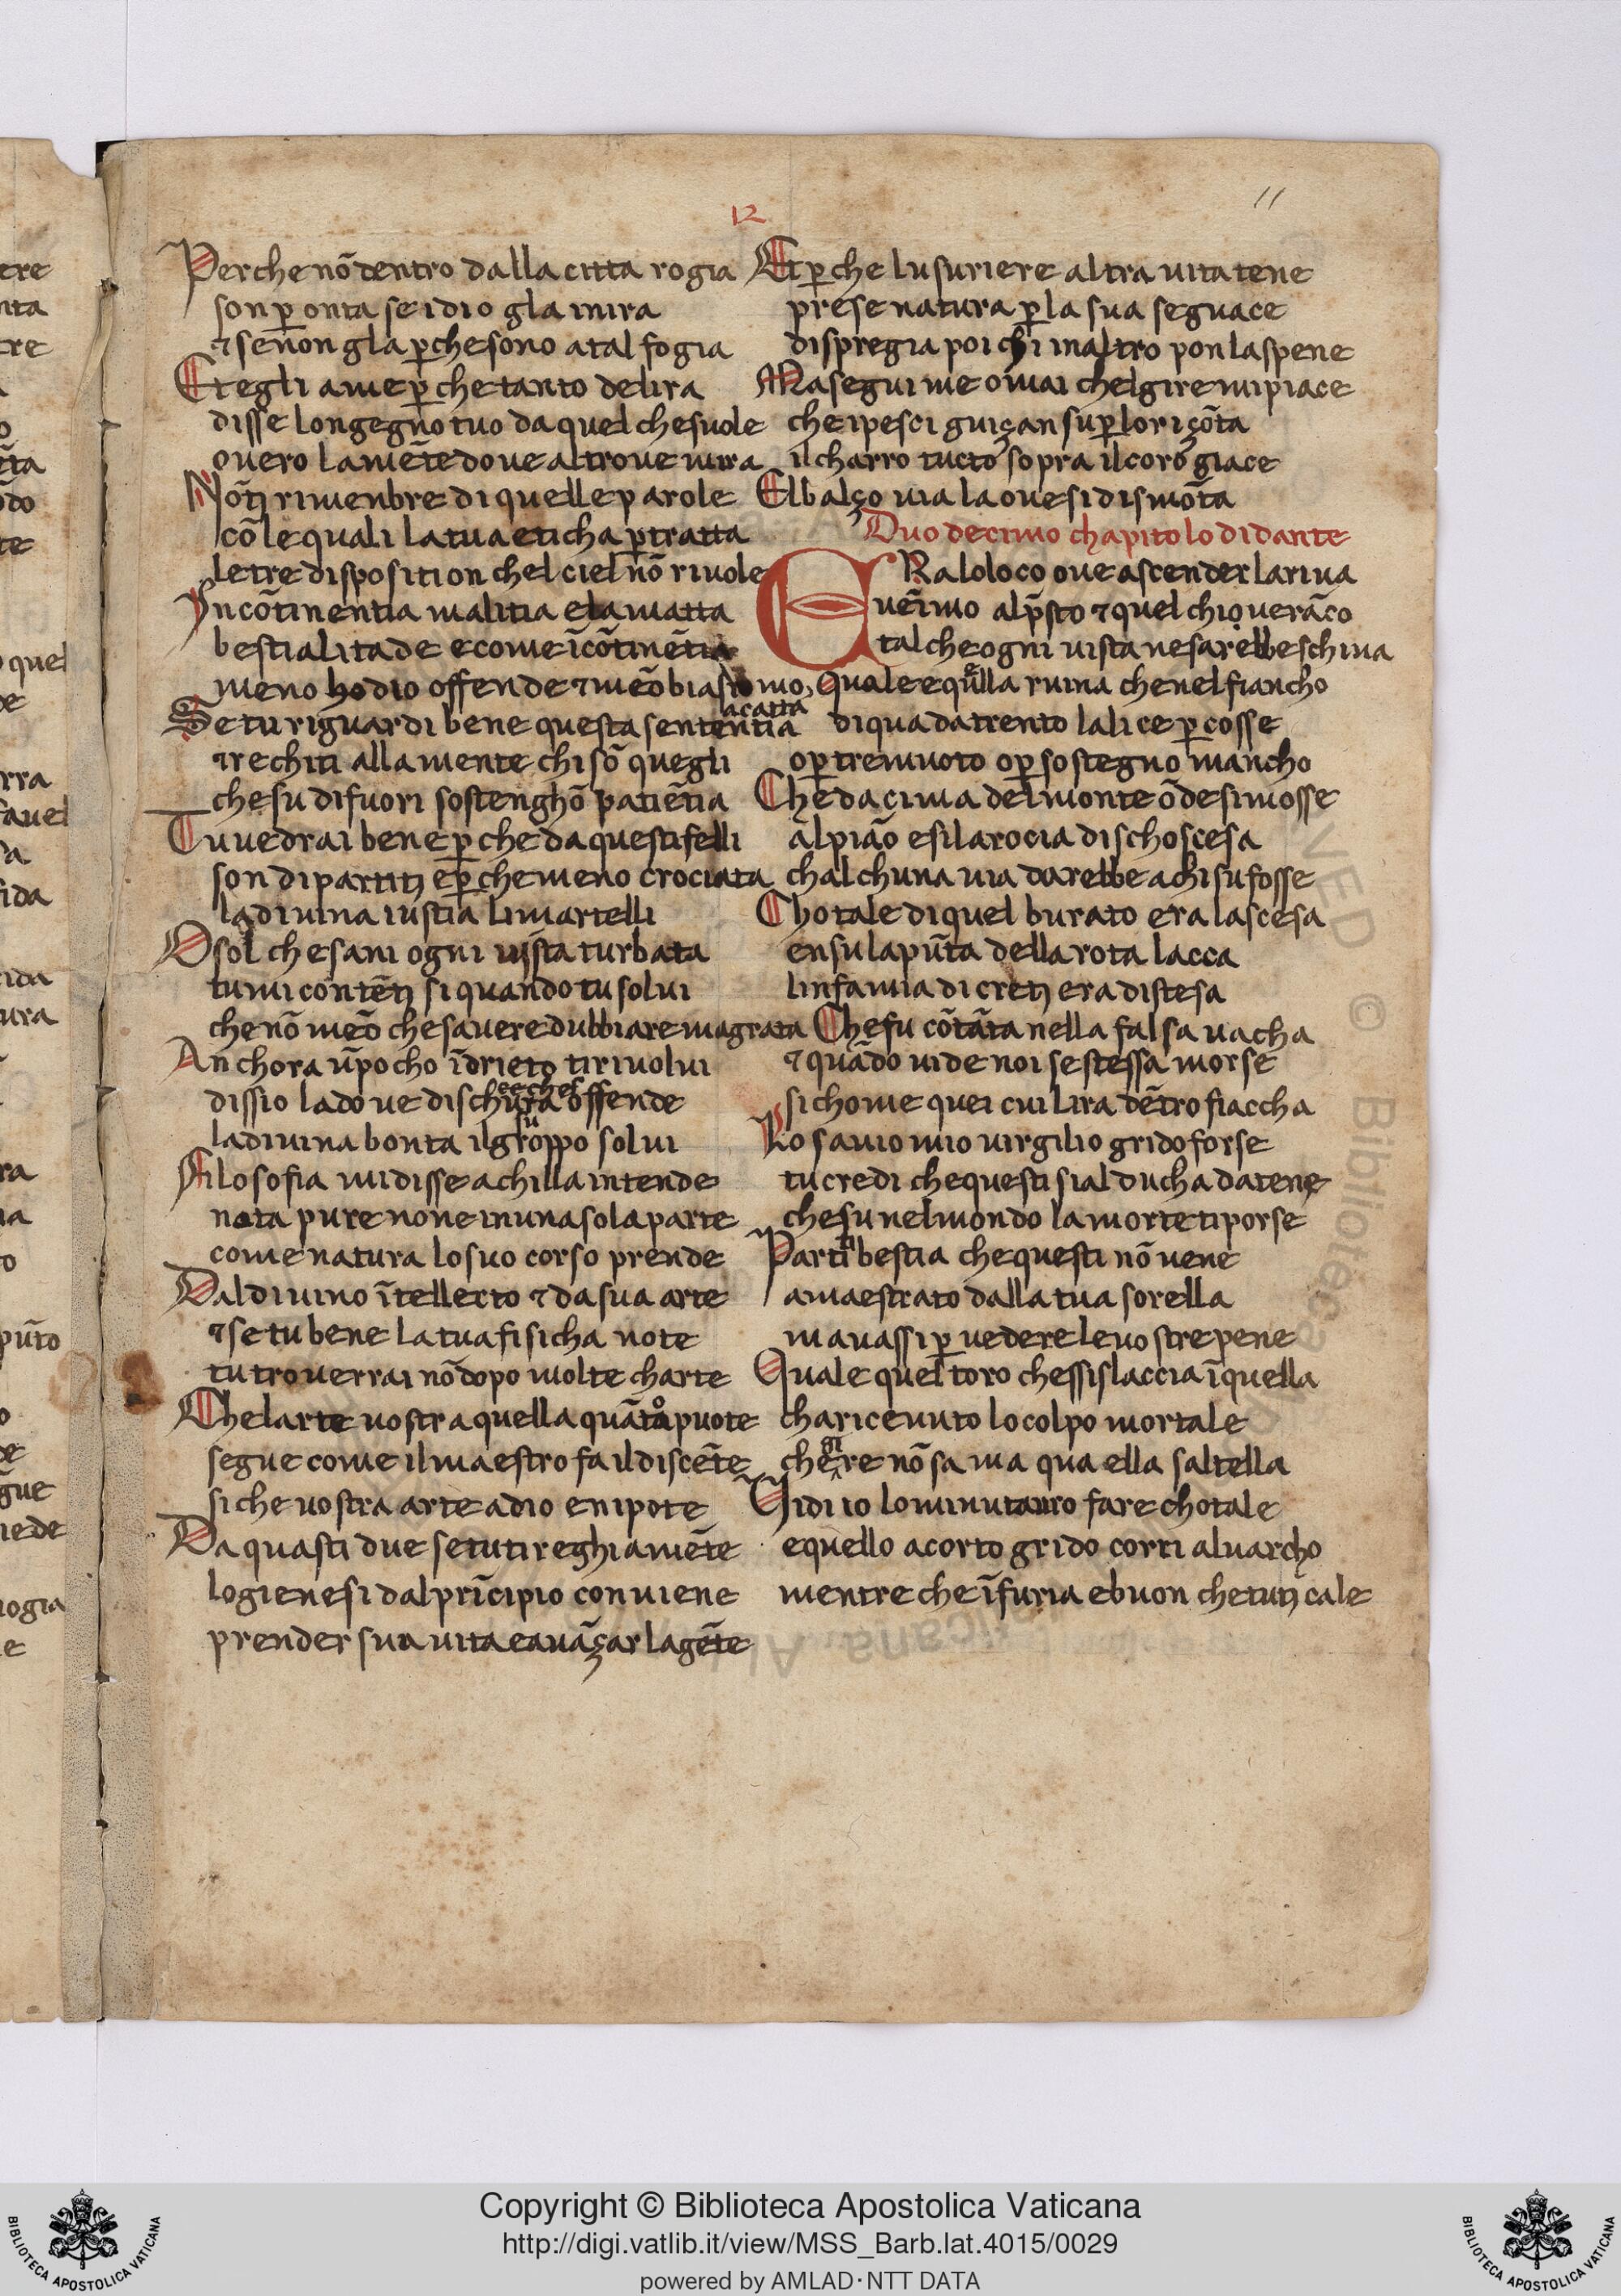 11
12
Perche nō dentro dalla citta rogia
son p̄ onta se idio gla inira
⁊ se non gla p̄che sono a tal fogia
Et egli a me p̄ che tanto delira
disse longegno tuo da quel che suole
ouero la mēte doue altroue mira
Nō tj rimenbre di quelle parole
cō le quali la tua eticha p̄tratta
le tre disposition chel ciel nō riuole
Incōtinentia malitia e la matta
bestialitade e come īcōtinētia
meno hodio offende ⁊ meō biasimo
acatta
Se tu riguardi bene questa sententia
⁊ rechiti alla mente chi sō quegli
che su di fuori sostenghō patiētia
Tu uedrai bene p̄ che da questi felli
son dipartitj e p̄ che meno crociata
la diuina iustia li martelli
O sol che sani ogni uista turbata
tu mi contētj si quando tu solui
che nō meō che sauere dubbiare magrata
Anchora ū pocho īdrieto ti riuolui
dissio la doue di sch ura offende
la diuina bonta il groppo solui
Filosofia mi disse a chilla intende
nota pure none in una sola parte
come natura lo suo corso prende
Dal diuino ītellecto ⁊ da sua arte
⁊ se tu bene la tua fisicha note
tu trouerrai nō dopo molte charte
Che larte uostra quella quāto puote
segue come il maestro fa il discēte
si che uostra arte a dio e nipote
Da quasti due se tu ti reghi a mēte
lo gienesi dal prīcipio conuiene
prender sua uita e auāçar la gēte
Et p̄ che lusuriere altra uita tene
prese natura p̄ la sua seguace
dispregia poi chi inaltro pon la spene
Ma segui me omai chel gire mi piace
che i pesci guiçan su p̄ loriçōta
il charro tucto sopra il coro giace
El balço uia la oue si dismōta
Duo decimo chapitolo di dante
ERa lo loco oue a scender la riua
uēimo alp̄sto ⁊ quel chi o uerāco
tal che ogni uista ne sarebbe schiua
Quale e q̄lla ruina che nel fiancho
di qua da trento lalice p̄cosse
o p̄ tremuoto o p̄ sostegno mancho
Che da çima del monte ōde si mosse
al piāo e si la rocia dischoscesa
chalchuna uia darebbe a chi su fosse
Chotale di quel burato era la scesa
en su la pūta della rota lacca
linfamia di cretj era distesa
Che fu cōtāta nella falsa uacha
⁊ quādo uide noi se stessa morse
si chome quei cui lira dētro fiaccha
Lo sauio mio uirgilio grido forse
tu credi che questi sial ducha da tene
che su nel mondo la morte ti porse
Parti bestia che questi nō uene
amaestrato dalla tua sorella
ma uassi p̄ uedere le uostre pene
Quale quel toro chessi slaccia ī quella
cha riceuuto lo colpo mortale
che gire nō sa ma qua e lla saltella
Vidi io lo minutauro fare chotale
e quello acorto grido corri al uarcho
mentre che ī furia e buon che tu tj cale
Copyright © Biblioteca Apostolica Vaticana
http://digi.vatlib.it/view/MSS_Barb.lat.4015/0029
powered by AMLAD·NTT DATA
BIBLIOTECA APOSTOLICA VATICANA
BIBLIOTECA APOSTOLICA VATICANA